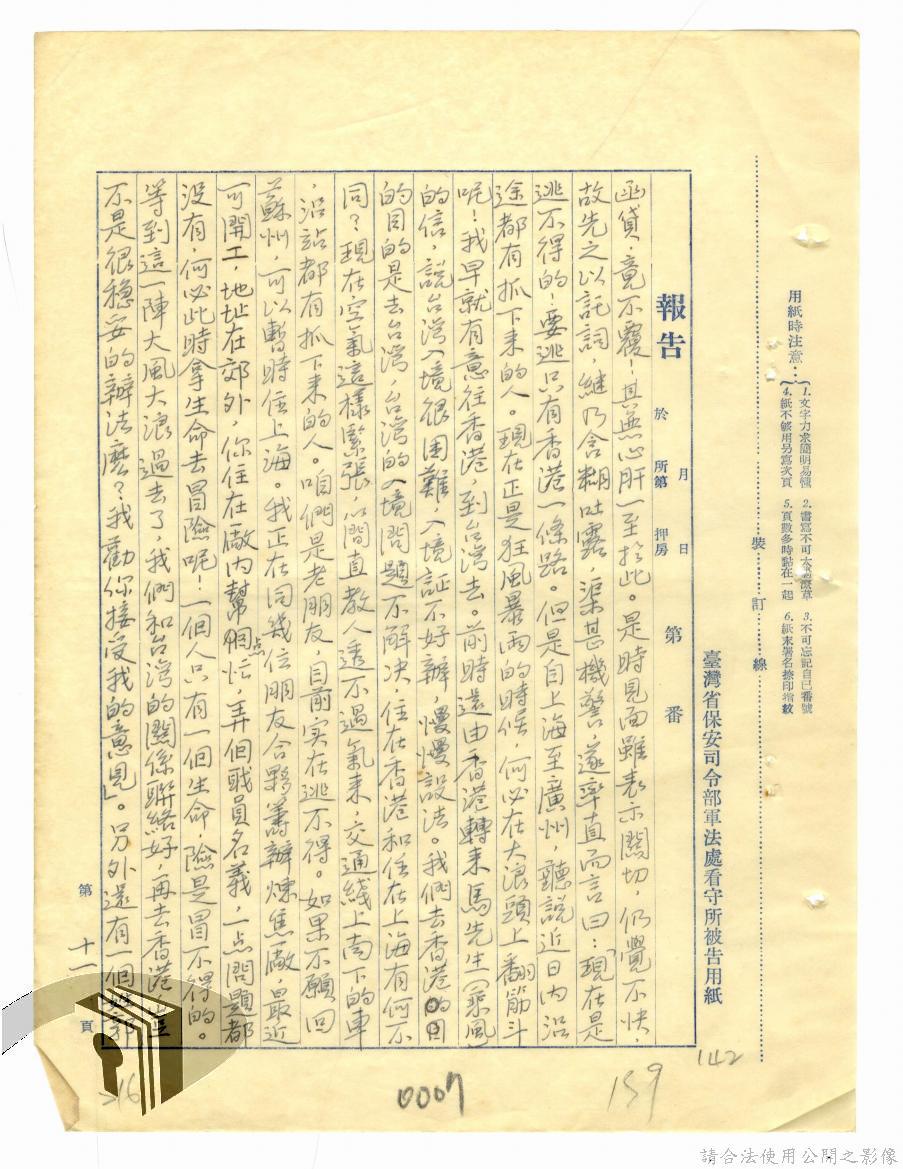 用紙時注意：
1.文字力求簡明易懂 2.書寫不可太過潦草 3.不可忘記自己番號
4.紙不够用另寫次頁 5.頁數多時黏在一起 6.紙末署名捺印指紋
裝訂線
臺灣省保安司令部軍法處看守所被告用紙
報告 於 月 日 所第 押房 第 番
函貸，竟不覆！其無心肝一至於此。是時見面雖表示關切，仍覺不快，
故先之以託詞，繼乃含糊吐露，渠甚機警，遂率直而言曰：「現在是
逃不得的！要逃只有香港一條路。但是自上海至廣州，聽說近日內沿
途都有抓下來的人。現在正是狂風暴雨的時候，何必在大浪頭上翻筋斗
呢！我早就有意往香港，到台灣去。前時還由香港轉來馬先生（乘風）
的信，說台灣入境很困難，入境証不好辦，慢慢設法。我們去香港的目
的目的是去台灣，台灣的入境問題不解决，住在香港和住在上海有何不
同？現在空氣這樣緊張，心間直教人透不過氣來，交通綫上南下的車
，沿站都有抓下來的人。咱們是老朋友，目前实在逃不得。如果不願回
蘇州，可以暫時住上海。我正在同幾位朋友合夥籌辦煉焦厰，最近
可開工，地址在郊外，你住在厰內幫個点忙，弄個職員名義，一点問題都
没有，何必此時拿生命去冒險呢！一個人只有一個生命，險是冒不得的。
等到這一陣大風大浪過去了，我們和台灣的關係聯絡好，再去香港
不是很穩妥的辦法麼？我勸你接受我的意見」。另外還有一個姓郭
第十一頁
142
159
0007
216
請合法使用公開之影像